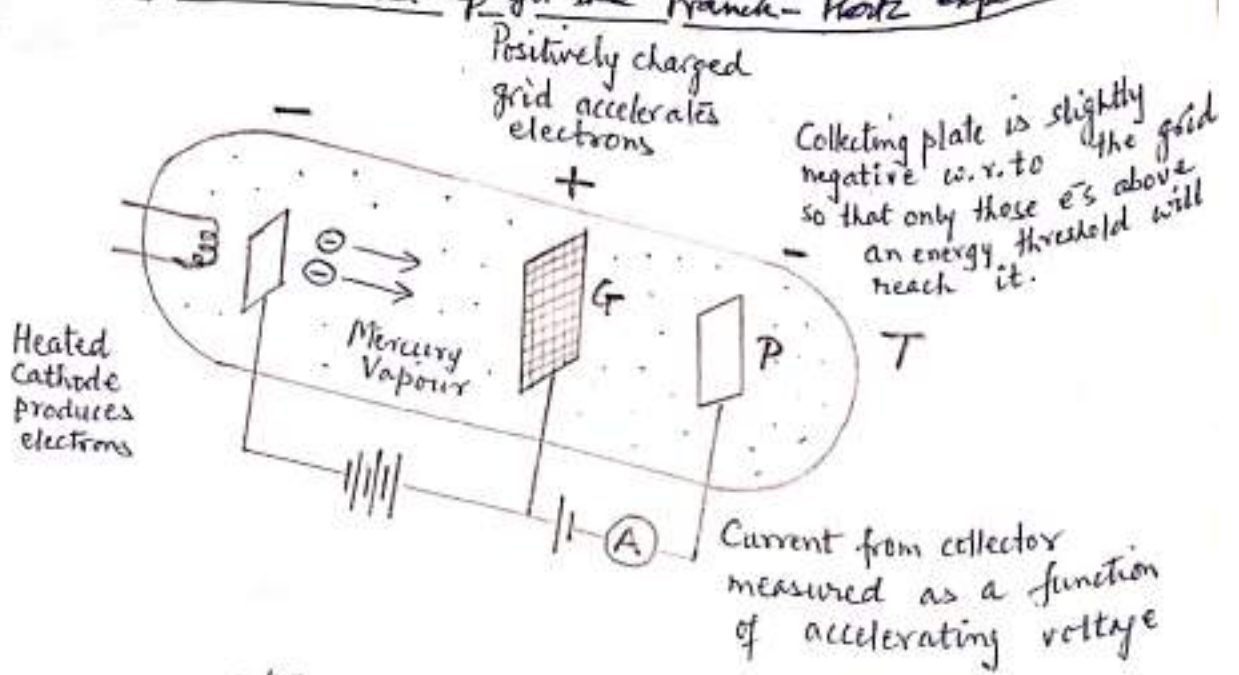 Franck - Hertz
Positively charged
grid accelerates
electrons
Collecting plate is slightly
negative w.r.to the grid
so that only those e̅s above
an energy threshold will
reach it.
−
+
−
⊖
⊖
G
P
T
Mercury
Vapour
Heated
Cathode
produces
electrons
A
Current from collector
measured as a function
of accelerating voltage